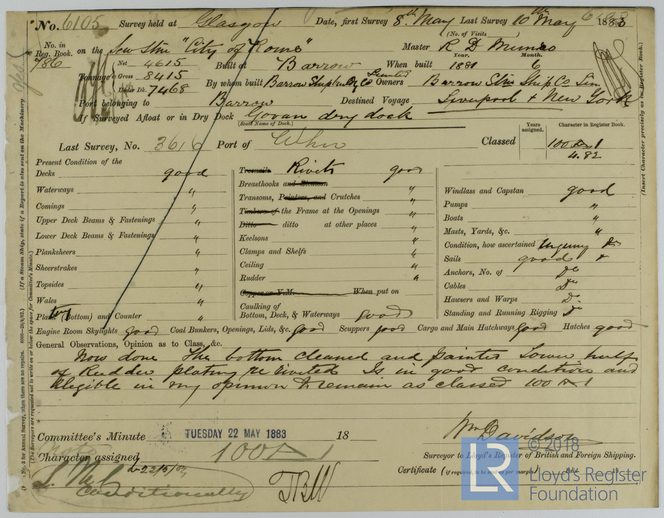 No. 6105 Survey held at Glasgow Date, first Survey 8th May Last Survey 10th May 1883
(No. of Visits )
No. in Reg. Book. 786 on the Screw Str "City of Rome" Master R D Munro
Tonnage Net 4615 Gross 8415 Under Dk. 7468 Built at Barrow When built Year. 1881 Month. 6
By whom built Barrow Shipbuildg Co Limited Owners Barrow Stm Ship Co Lim
Port belonging to Barrow Destined Voyage Liverpool & New York
Surveyed Afloat or in Dry Dock Govan dry dock
(State Name of Dock.)
Years assigned. Character in Register Book.
Last Survey, No. 3616 Port of Classed 100 A 1
4.82
Present Condition of the
Decks good
Waterways "
Comings "
Upper Deck Beams & Fastenings "
Lower Deck Beams & Fastenings "
Planksheers "
Sheerstrakes "
Topsides "
Wales "
Plating (Bottom) and Counter "
Treenails Rivets good
Breasthooks and Stemson "
Transoms, Pointers, and Crutches "
Timbers of the Frame at the Openings "
Ditto ditto at other places "
Keelsons "
Clamps and Shelfs "
Ceiling "
Rudder "
Copper or Y.M. When put on
Caulking of Bottom, Deck, & Waterways good
Windlass and Capstan good
Pumps "
Boats "
Masts, Yards, &c. "
Condition, how ascertained Inquiry &
Sails good &
Anchors, No. of Do
Cables Do
Hawsers and Warps Do
Standing and Running Rigging Do
Engine Room Skylights good Coal Bunkers, Openings, Lids, &c. good Scuppers good Cargo and Main Hatchways good Hatches good
General Observations, Opinion as to Class, &c.
Now done The bottom cleaned and painted Lower half
of Rudder plating re riveted Is in good condition and
Elegible in my opinion to remain as classed 100 A 1
Committee's Minute TUESDAY 22 MAY 1883 18
Character assigned 100 A 1
Conditionally
Wm Davidson
Surveyor to Lloyd's Register of British and Foreign Shipping.
Certificate
© 2018
LR
Lloyd's Register
Foundation